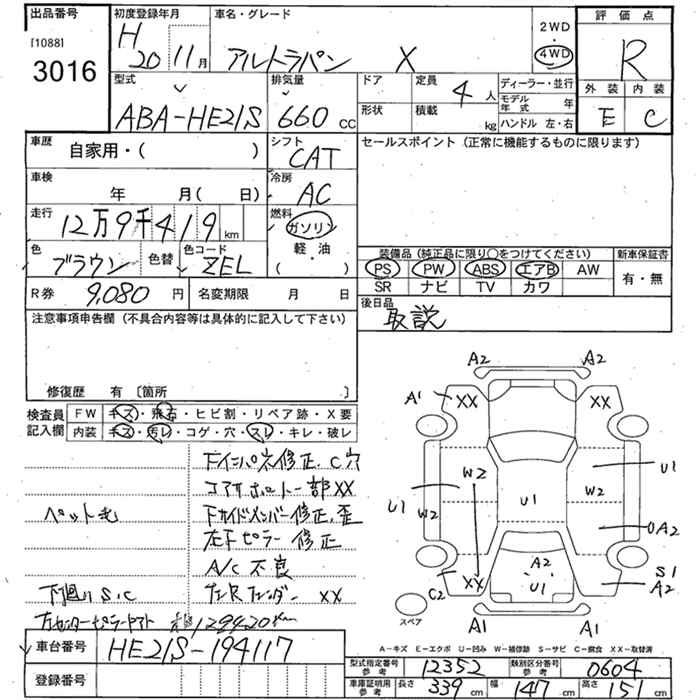 出品番号
[1088]
3016
初度登録年月
H
20 11月
車名・グレード
アルトラパン X
2WD
4WD
評価点
R
外装 内装
E C
型式
ABA-HE21S
排気量
660 CC
ドア
形状
定員
4人
積載
kg
ディーラー・並行
モデル年式 年
ハンドル 左・右
車歴
自家用・( )
シフト
CAT
セールスポイント (正常に機能するものに限ります)
車検
年 月(日)
冷房
AC
走行
12万9千419km
燃料
ガソリン
軽・油
( )
色
ブラウン
色替
色コード
ZEL
装備品 (純正品に限り○をつけてください)
PS PW ABS エアB AW
SR ナビ TV カワ
新車保証書
有・無
R券 9,080円
名変期限 月 日
後日品
取説
注意事項申告欄 (不具合内容等は具体的に記入して下さい)
修復歴 有 〔箇所 〕
検査員記入欄
FW キズ・飛石・ヒビ割・リペア跡・X要
内装 キズ・汚レ・コゲ・穴・スレ・キレ・破レ
下インパネ修正、C穴
コアサポート一部XX
ペット毛
下サイドメンバー修正、歪
左Fピラー修正
A/C不良
下廻りS・C
129420km
A2 A2
A1 XX XX
W2 U1
U1 W2 U1 W2
A2
A2 S1
C2 XX U1 A2
スペア
A1 A1
A-キズ E-エクボ U-凹み W-補修跡 S-サビ C-腐食 XX-取替済
車台番号
HE21S-194117
登録番号
型式指定番号 参考
12352
類別区分番号 参考
0604
車庫証明用 参考
長さ 339cm
幅 147cm
高さ 151cm